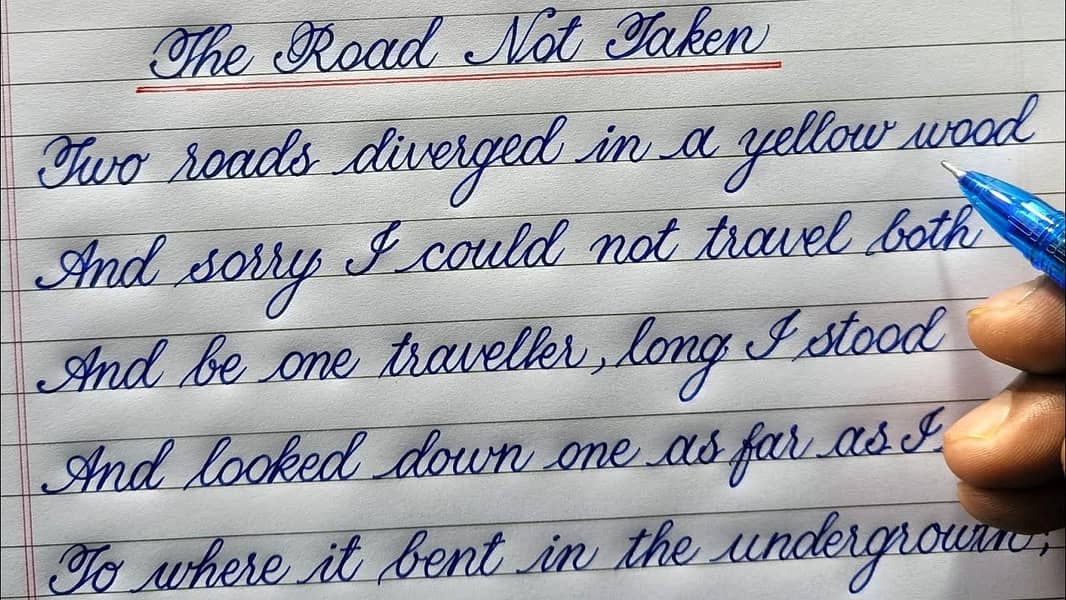 The Road Not Taken
Two roads diverged in a yellow wood
And sorry I could not travel both
And be one traveller, long I stood
And looked down one as far as I
To where it bent in the undergrowth;